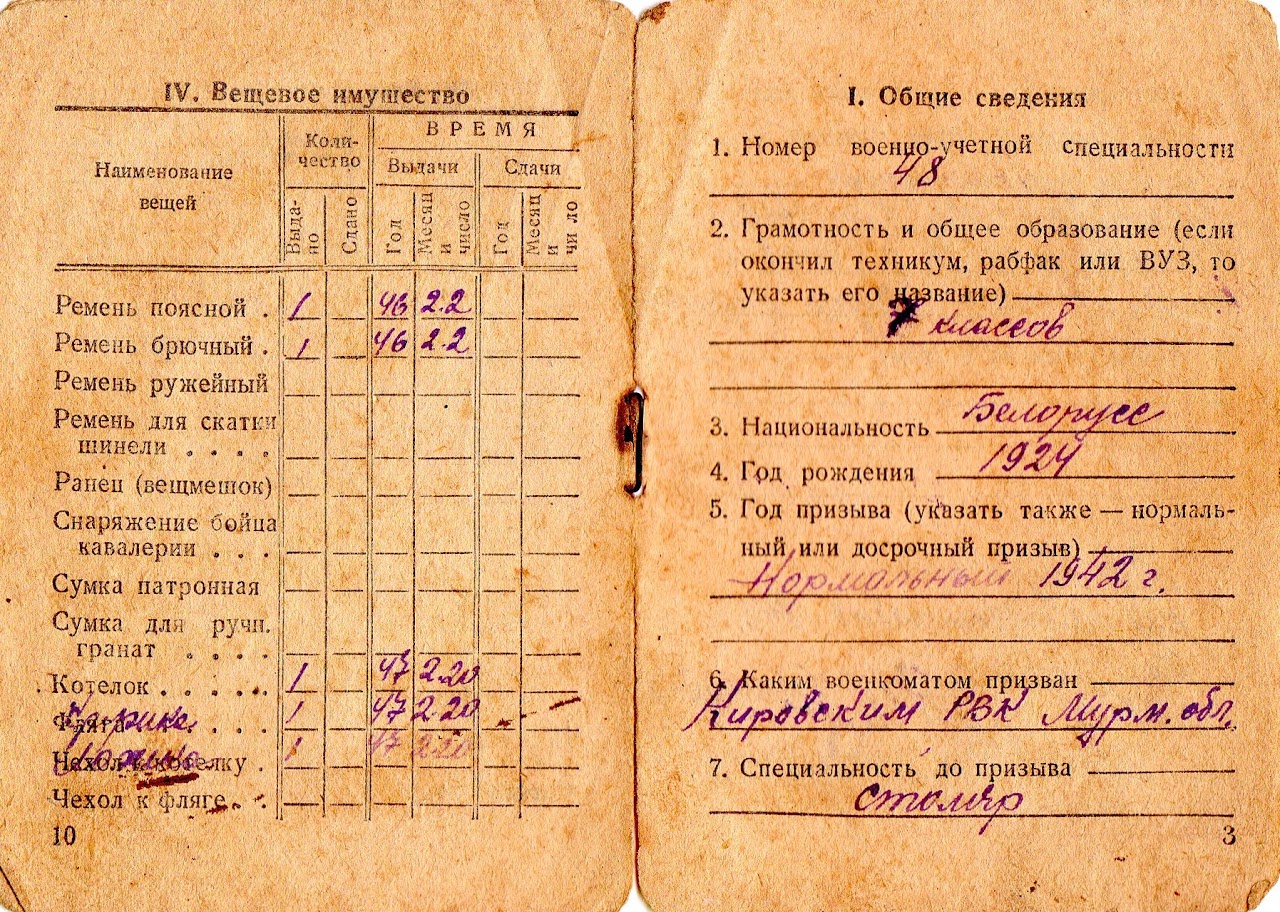 IV. Вещевое имущество
Наименование вещей
Коли-
чество
ВРЕМЯ
Выдачи
Сдачи
Выда-
но
Сдано
Год
Месяц и число
Год
Месяц и число
Ремень поясной . 1 46 2.2
Ремень брючный . 1 46 2.2
Ремень ружейный
Ремень для скатки
шинели . . . .
Ранец (вещмешок)
Снаряжение бойца
кавалерии . . .
Сумка патронная
Сумка для ручн.
гранат . . . .
Котелок . . . . . 1 47 2.20
Фляга . . . . 1 47 2.20
Чехол к котелку . 1 47 2.20
Чехол к фляге . .
10
I. Общие сведения
1. Номер военно-учетной специальности
48
2. Грамотность и общее образование (если
окончил техникум, рабфак или ВУЗ, то
указать его название)
7 классов
3. Национальность Белорусс
4. Год рождения 1924
5. Год призыва (указать также — нормаль-
ный или досрочный призыв)
Нормальный 1942 г.
6. Каким военкоматом призван
Кировским РВК Мурм. обл.
7. Специальность до призыва
столяр
3